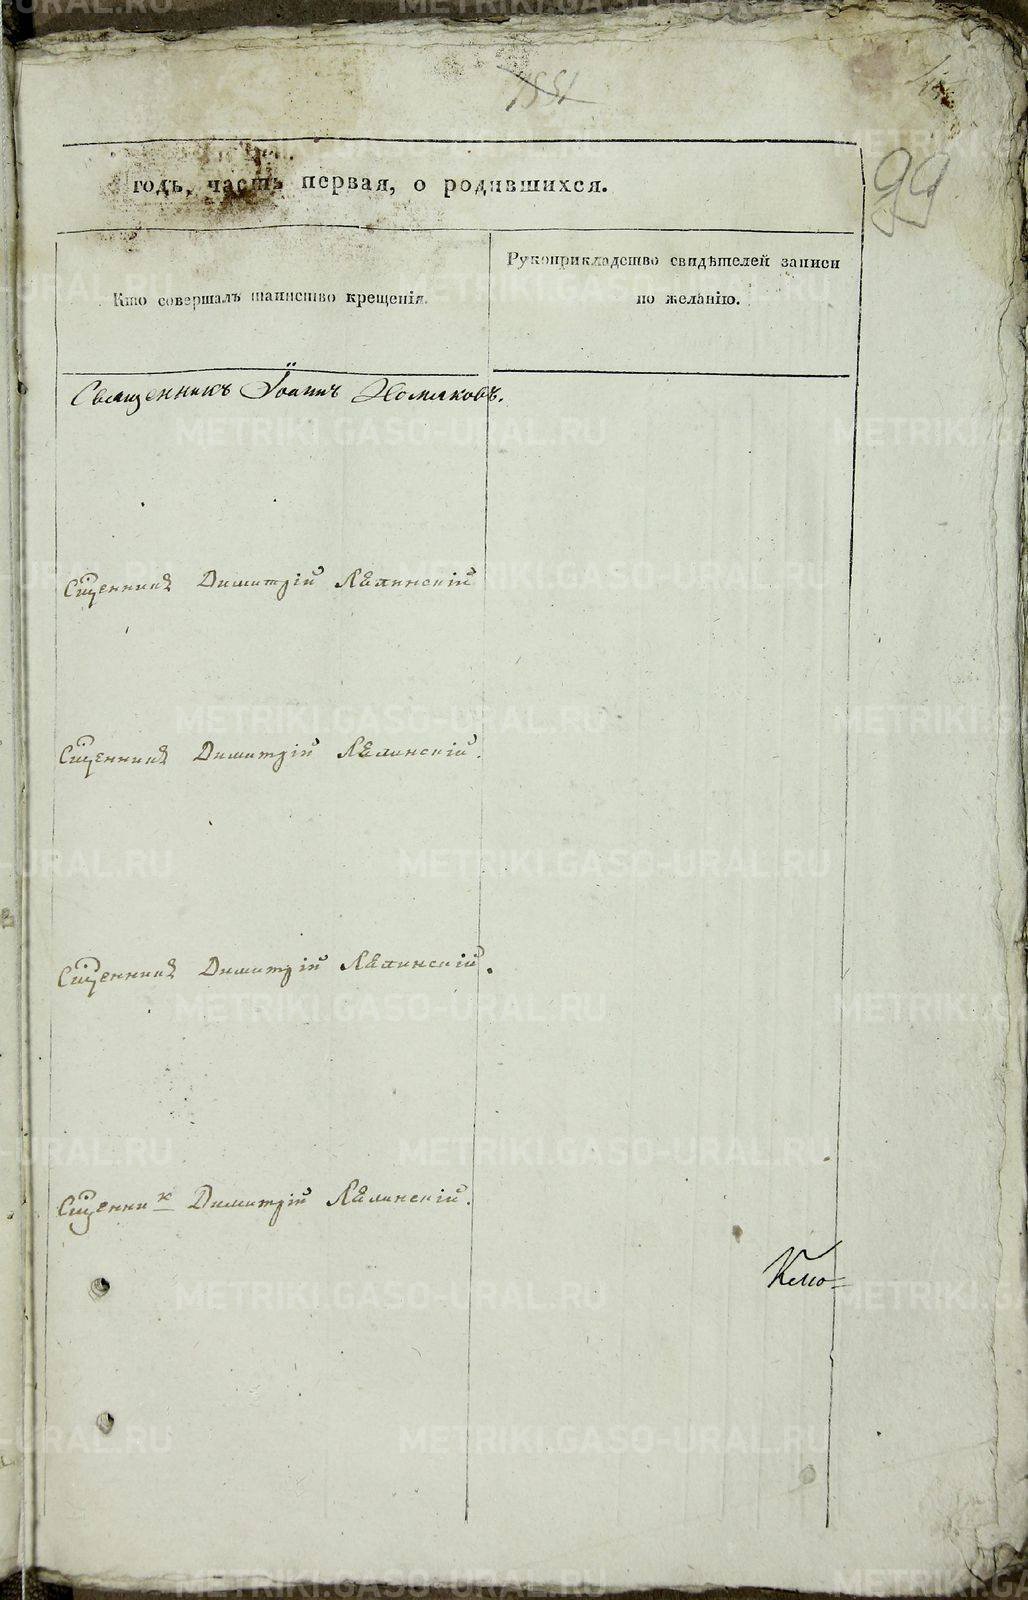 1851
99
годъ, часть первая, о родившихся.
Кто совершалъ таинство крещенія.
Рукоприкладство свидѣтелей записи
по желанію.
Священникъ Іоаннъ Хомяковъ.
Сщенникъ Димитрій
Сщенникъ Димитрій
Сщенникъ Димитрій
Сщенник Димитрій
METRIKI.GASO-URAL.RU